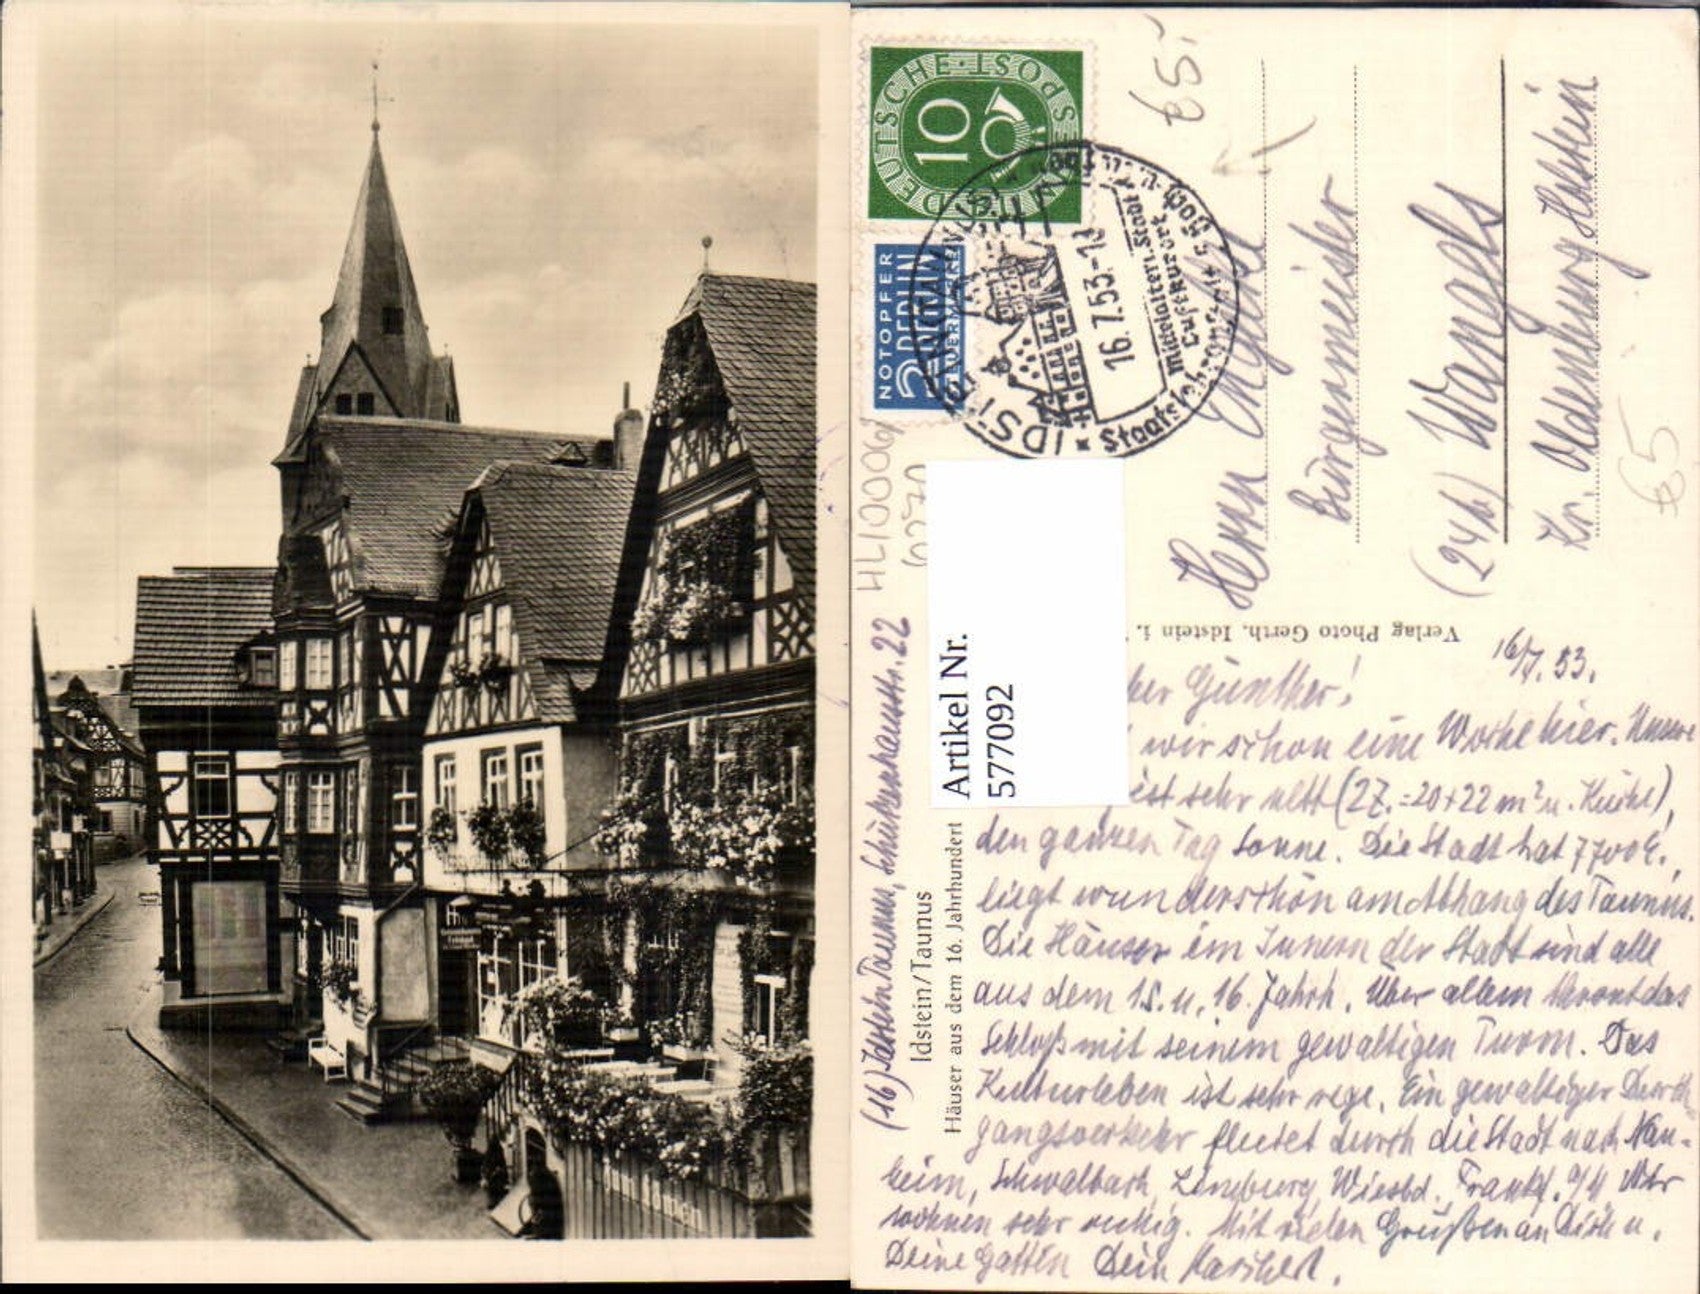 DEUTSCHE·POST
10
NOTOPFER
2 BERLIN
STEUERMARKE
IDSTEIN
16.7.53.-18
mittelalterl. Stadt
Luftkurort
Staatsbau
€5.-
HL10006/
Artikel Nr.
577092
Herrn
Bürgermeister
(24b) Wangels
Kr. Oldenburg/Holstein
€5
Verlag Photo Gerth, Idstein i.
(16) Idstein/Taunus, Schützenhausstr. 22
Idstein/Taunus
Häuser aus dem 16. Jahrhundert
16/7. 53.
ber Günther!
wir schon eine Woche hier. Unsere
ist sehr nett (2 Z. = 20 + 22 m² u. Küche),
den ganzen Tag Sonne. Die Stadt hat 7700 E.,
liegt wunderschön am Abhang des Taunus.
Die Häuser im Innern der Stadt sind alle
aus dem 15. u. 16. Jahrh. Über allem thront das
Schloß mit seinem gewaltigen Turm. Das
Kulturleben ist sehr rege. Ein gewaltiger Durch
gangsverkehr flutet durch die Stadt nach Nau-
heim, Schwalbach, Limburg, Wiesbd., Frankf. a/M Wir
wohnen sehr ruhig. Mit vielen Grüßen an Dich u.
Deine Gattin Dein